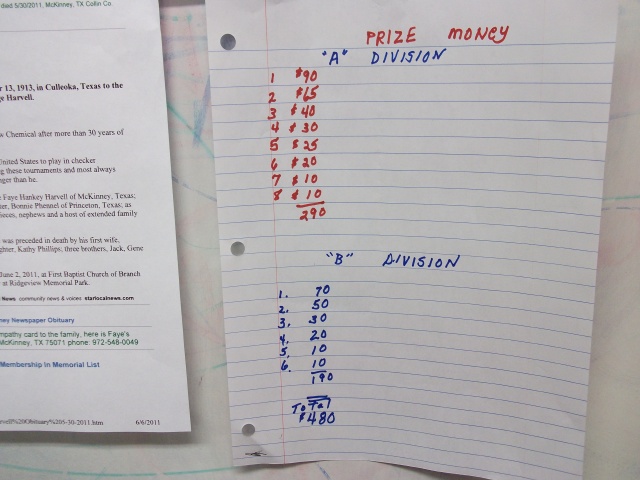 died 5/30/2011, McKinney, TX Collin Co.
r 13, 1913, in Culleoka, Texas to the
ge Harvell.
w Chemical after more than 30 years of
United States to play in checker
g these tournaments and most always
nger than he.
Faye Hankey Harvell of McKinney, Texas;
ter, Bonnie Phennel of Princeton, Texas; as
ieces, nephews and a host of extended family
was preceded in death by his first wife,
ghter, Kathy Phillips, three brothers, Jack, Gene
June 2, 2011, at First Baptist Church of Branch
at Ridgeview Memorial Park.
News community news & voices starlocalnews.com
ney Newspaper Obituary
mpathy card to the family, here is Faye's
McKinney, TX 75071 phone: 972-548-0049
Membership In Memorial List
6/6/2011
PRIZE MONEY
"A" DIVISION
1 $90
2 $65
3 $40
4 $30
5 $25
6 $20
7 $10
8 $10
290
"B" DIVISION
1. 70
2. 50
3. 30
4. 20
5. 10
6. 10
190
ToTal
$480